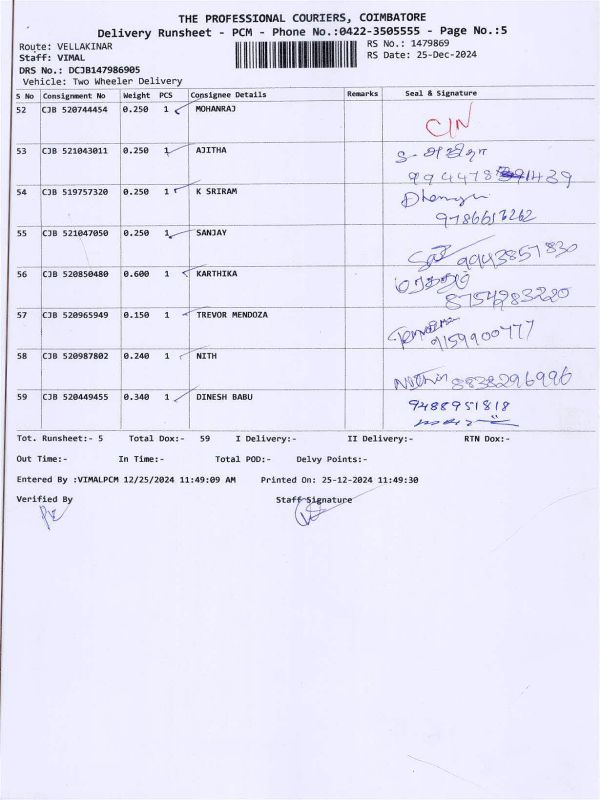 THE PROFESSIONAL COURIERS, COIMBATORE
Delivery Runsheet - PCM - Phone No.:0422-3505555 - Page No.:5
Route: VELLAKINAR
Staff: VIMAL
DRS No.: DCJB147986905
Vehicle: Two Wheeler Delivery
RS No.: 1479869
RS Date: 25-Dec-2024
S No Consignment No Weight PCS Consignee Details Remarks Seal & Signature
52 CJB 520744454 0.250 1 MOHANRAJ
C/N
53 CJB 521043011 0.250 1 AJITHA
54 CJB 519757320 0.250 1 K SRIRAM
9786617262
55 CJB 521047050 0.250 1 SANJAY
9943857830
56 CJB 520850480 0.600 1 KARTHIKA
8754283220
57 CJB 520965949 0.150 1 TREVOR MENDOZA
9159900777
58 CJB 520987802 0.240 1 NITH
Nithin 8838296996
59 CJB 520449455 0.340 1 DINESH BABU
9488951818
Tot. Runsheet:- 5 Total Dox:- 59 I Delivery:- II Delivery:- RTN Dox:-
Out Time:- In Time:- Total POD:- Delvy Points:-
Entered By :VIMALPCM 12/25/2024 11:49:09 AM Printed On: 25-12-2024 11:49:30
Verified By Staff Signature